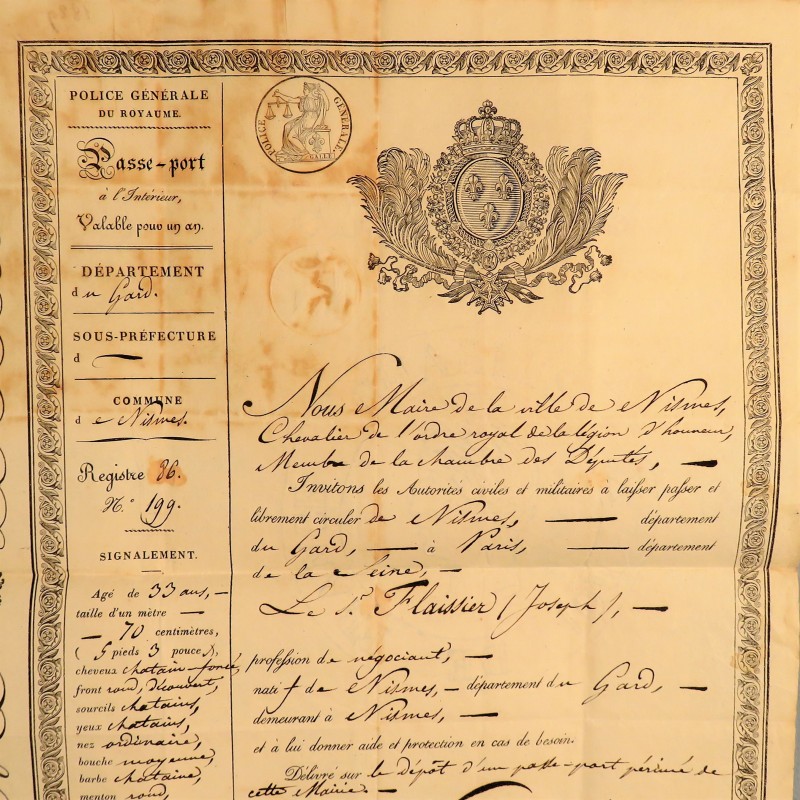 POLICE GÉNÉRALE
DU ROYAUME.
Passe-port
à l'Intérieur,
Valable pour un an.
DÉPARTEMENT
du Gard.
SOUS-PRÉFECTURE
d —
COMMUNE
de Nismes.
Registre 86.
N.° 199.
SIGNALEMENT.
Agé de 33 ans, —
taille d'un mètre —
— 70 centimètres,
(5 pieds 3 pouces),
cheveux chatain-foncé,
front rond, découvert,
sourcils chatains,
yeux chatains,
nez ordinaire,
bouche moyenne,
barbe chataine,
menton rond,
POLICE GÉNÉRALE.
Nous Maire de la ville de Nismes,
Chevalier de l'ordre royal de la légion d'honneur,
Membre de la chambre des Députés, —
Invitons les Autorités civiles et militaires à laisser passer et
librement circuler de Nismes, — département
du Gard, — à Paris, — département
de la Seine, —
Le S.r Flaissier (Joseph), —
profession de négociant, —
natif de Nismes, — département du Gard, —
demeurant à Nismes, —
et à lui donner aide et protection en cas de besoin.
Délivré sur le dépôt d'un passe-port périmé de
cette Mairie. —